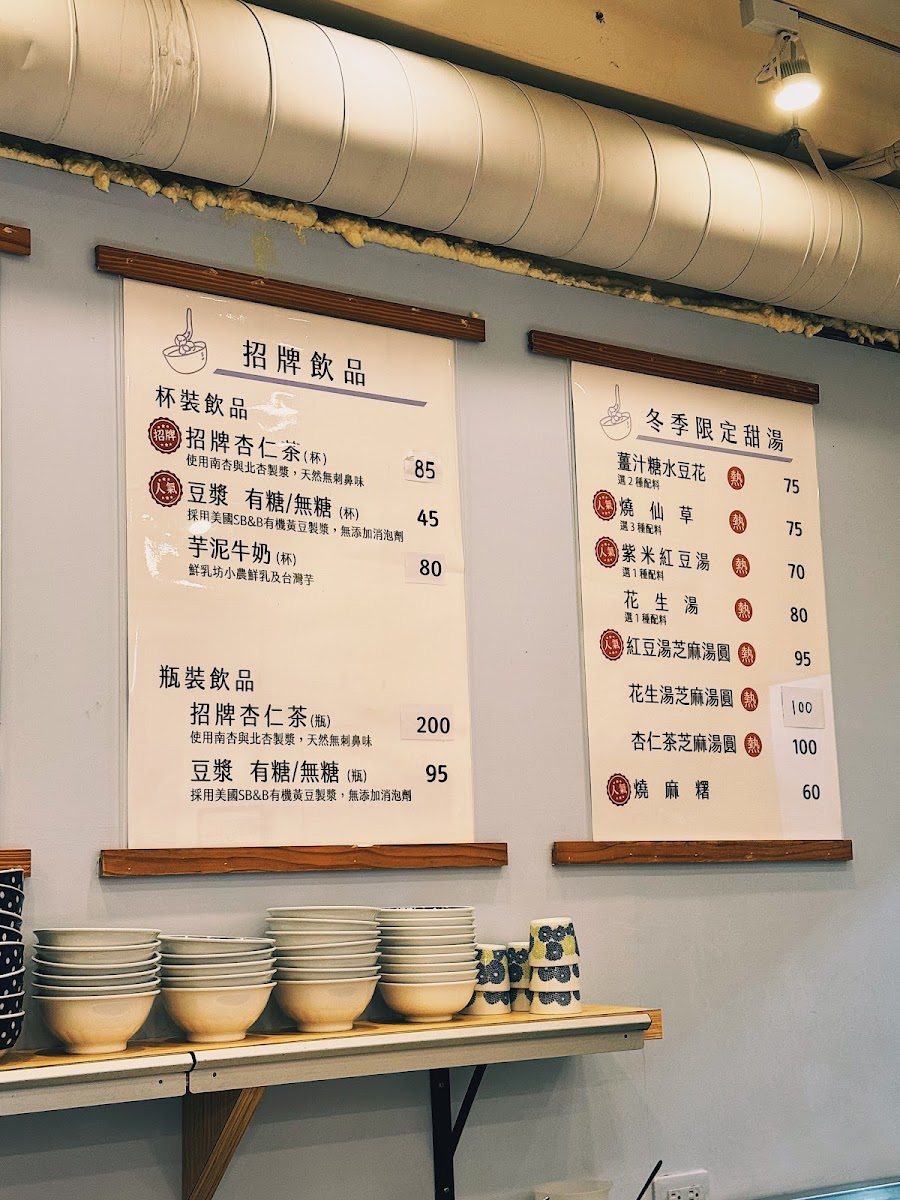 招牌飲品
杯裝飲品
招牌 招牌杏仁茶(杯) 85
使用南杏與北杏製漿，天然無刺鼻味
人氣 豆漿 有糖/無糖 (杯) 45
採用美國SB&B有機黃豆製漿，無添加消泡劑
芋泥牛奶(杯) 80
鮮乳坊小農鮮乳及台灣芋
瓶裝飲品
招牌杏仁茶(瓶) 200
使用南杏與北杏製漿，天然無刺鼻味
豆漿 有糖/無糖 (瓶) 95
採用美國SB&B有機黃豆製漿，無添加消泡劑
冬季限定甜湯
薑汁糖水豆花 熱 75
選2種配料
人氣 燒仙草 熱 75
選3種配料
人氣 紫米紅豆湯 熱 70
選1種配料
花生湯 熱 80
選1種配料
人氣 紅豆湯芝麻湯圓 熱 95
花生湯芝麻湯圓 熱 100
杏仁茶芝麻湯圓 熱 100
人氣 燒麻糬 60